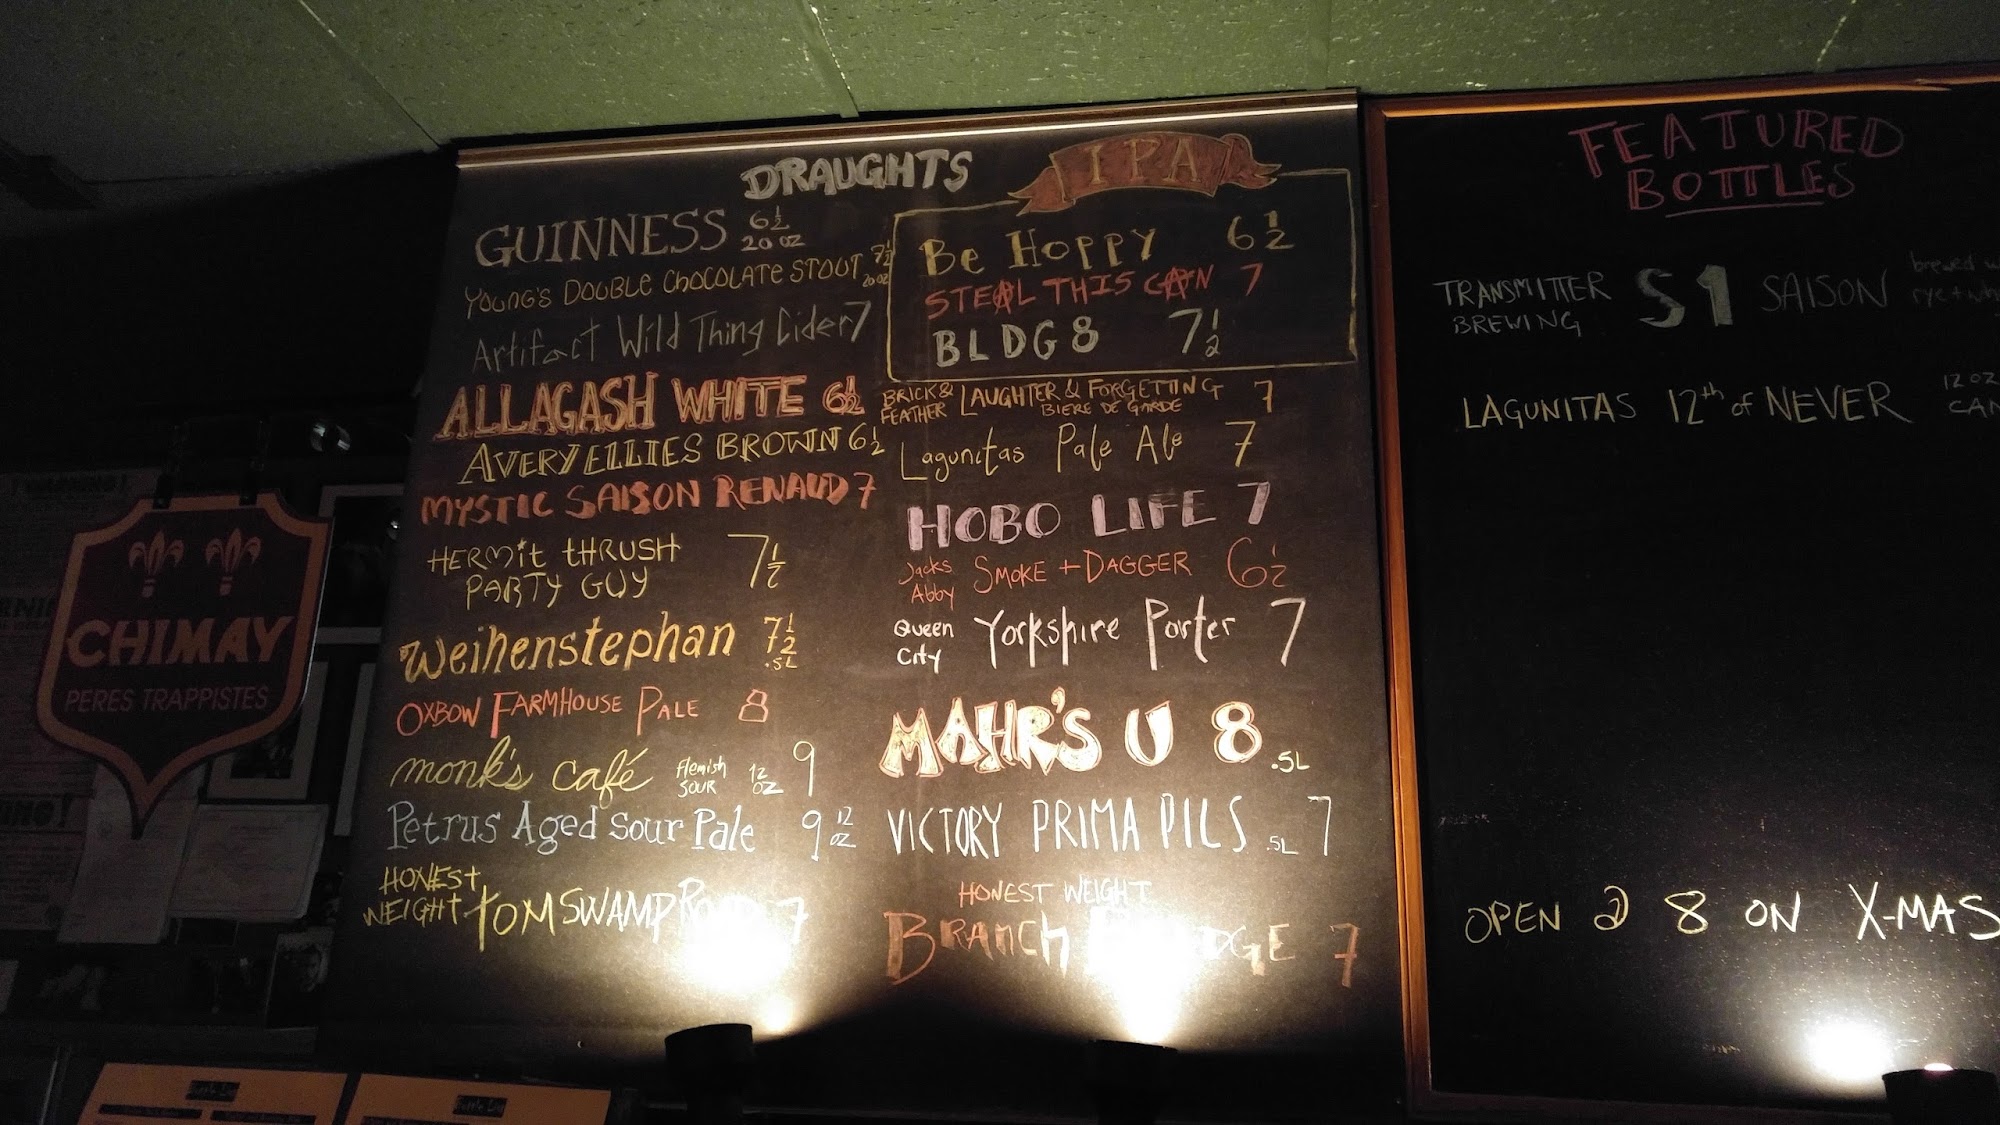 DRAUGHTS
GUINNESS 6½ 20 OZ
YOUNG'S DOUBLE CHOCOLATE STOUT 7½ 20 OZ
Artifact Wild Thing Cider 7
ALLAGASH WHITE 6½
AVERY ELLIES BROWN 6½
MYSTIC SAISON RENAUD 7
HERMIT THRUSH
PARTY GUY 7½
Weihenstephan 7½ .5L
OXBOW FARMHOUSE PALE 8
monk's café Flemish SOUR 12 OZ 9
Petrus Aged Sour Pale 9 12 OZ
HONEST
WEIGHT TOM SWAMP 7
IPA
Be Hoppy 6½
STEAL THIS CAN 7
BLDG 8 7½
BRICK & FEATHER LAUGHTER & FORGETTING 7
BIERE DE GARDE
Lagunitas Pale Ale 7
HOBO LIFE 7
Jacks Abby SMOKE + DAGGER 6½
Queen City Yorkshire Porter 7
MAHR'S U 8 .5L
VICTORY PRIMA PILS .5L 7
HONEST WEIGHT
BRANCH 7
FEATURED
BOTTLES
TRANSMITTER
BREWING S1 SAISON brewed
LAGUNITAS 12th of NEVER 12 OZ
OPEN @ 8 ON X-MAS
CHIMAY
PERES TRAPPISTES